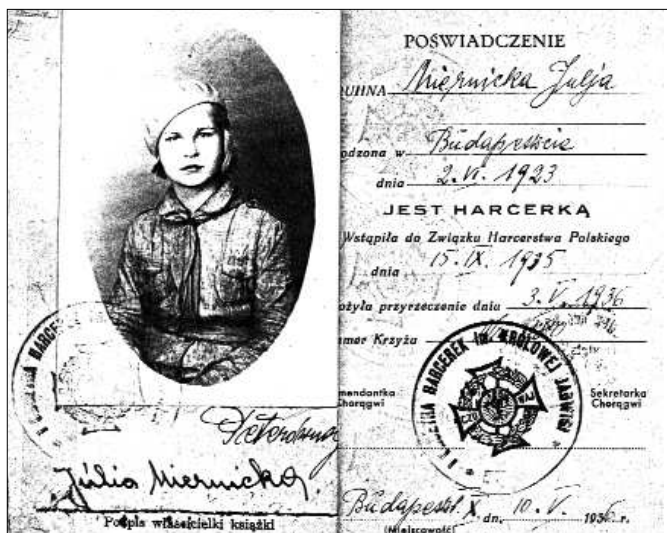 POŚWIADCZENIE
UHNA Miernicka Julja
odzona w Budapeszcie
dnia 2.VI. 1923
JEST HARCERKĄ
Wstąpiła do Związku Harcerstwa Polskiego
dnia 15.IX. 1935
ożyła przyrzeczenie dnia 3.V.1936
mer Krzyża
mendantka
Chorągwi
Sekretarka
Chorągwi
HARCEREK IM. KRÓLOWEJ JADWIGI
CZU WAJ
HARCEREK
Júlia Miernicka
Podpis właścicielki książki
Budapeszt. X dn. 10.V. 1936 r.
(Miejscowość)